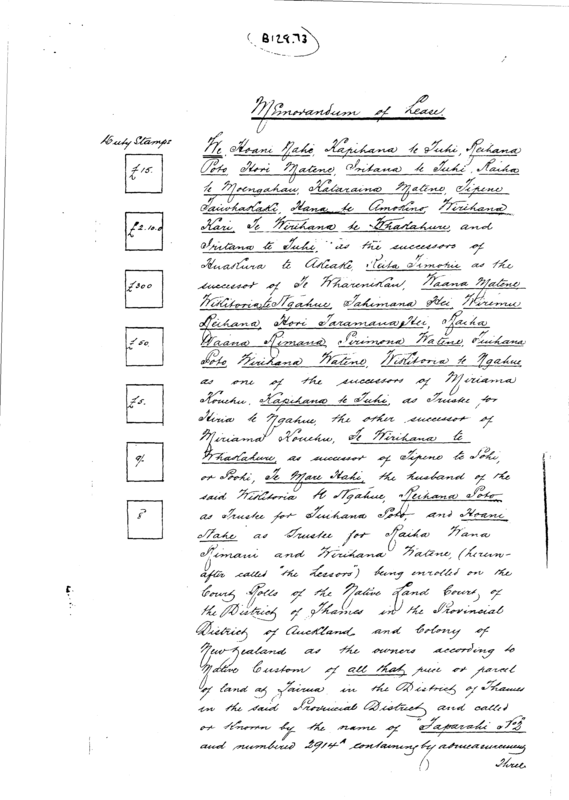 B129.73
Memorandum of Lease
Duty Stamps
£15.
£2.10.0
£300
£50
£5.
9/-
8
We, Hoani Nahe, Kapihana te Tuhi, Reihana
Poto, Hori Matene, Iritana te Tuhi, Raiha
te Moengahau, Kataraina Matene, Tipene
Taiwhakaki, Hana te Amohino, Wirihana
Kari, Te Wirihana te Whakahure and
Iritana te Tuhi, as the successors of
Huakura te Akeake, Reita Timotiu as the
successor of Te Wharenikau, Waana Matene
Wikitoria te Ngahue, Tahimana Hei, Wiremu
Reihana, Hori Taramana Hei, Raiha
Waana Rimana, Pirimona Watene, Tiuhana
Poto Wirihana Watene, Wikitoria te Ngahue
as one of the successors of Miriama
Kouehu, Kapihana te Tuhi, as Trustee for
Hiria te Ngahue, the other successor of
Miriama Kouehu, Te Wirihana te
Whakahure, as successor of Tipene te Pohi,
or Poohi, Te Mare Hahi, the husband of the
said Wikitoria te Ngahue, Reihana Poto
as Trustee for Tiuhana Poto and Hoani
Nahe as Trustee for Raiha Wana
Rimani and Wirihana Watene, (herein-
after called "the Lessors") being enrolled on the
Court Rolls of the Native Land Court, of
the District of Thames in the Provincial
District of Auckland and Colony of
New Zealand as the owners according to
Native Custom of all that piece or parcel
of land at Tairua in the District of Thames
in the said Provincial District and called
or known by the name of "Taparahi No 2
and numbered 2914A containing by admeasurement
Three